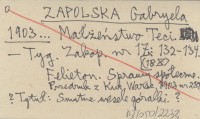 ZAPOLSKA Gabryela
1903... Małżeństwo Teci.
— Tyg. Zakop. nr 17: 132-134.
Felieton. Sprawy społeczne.
Przedruk z Kur. Warsz. 1903 nr
? Tytuł: Smutne wesele góralki ?